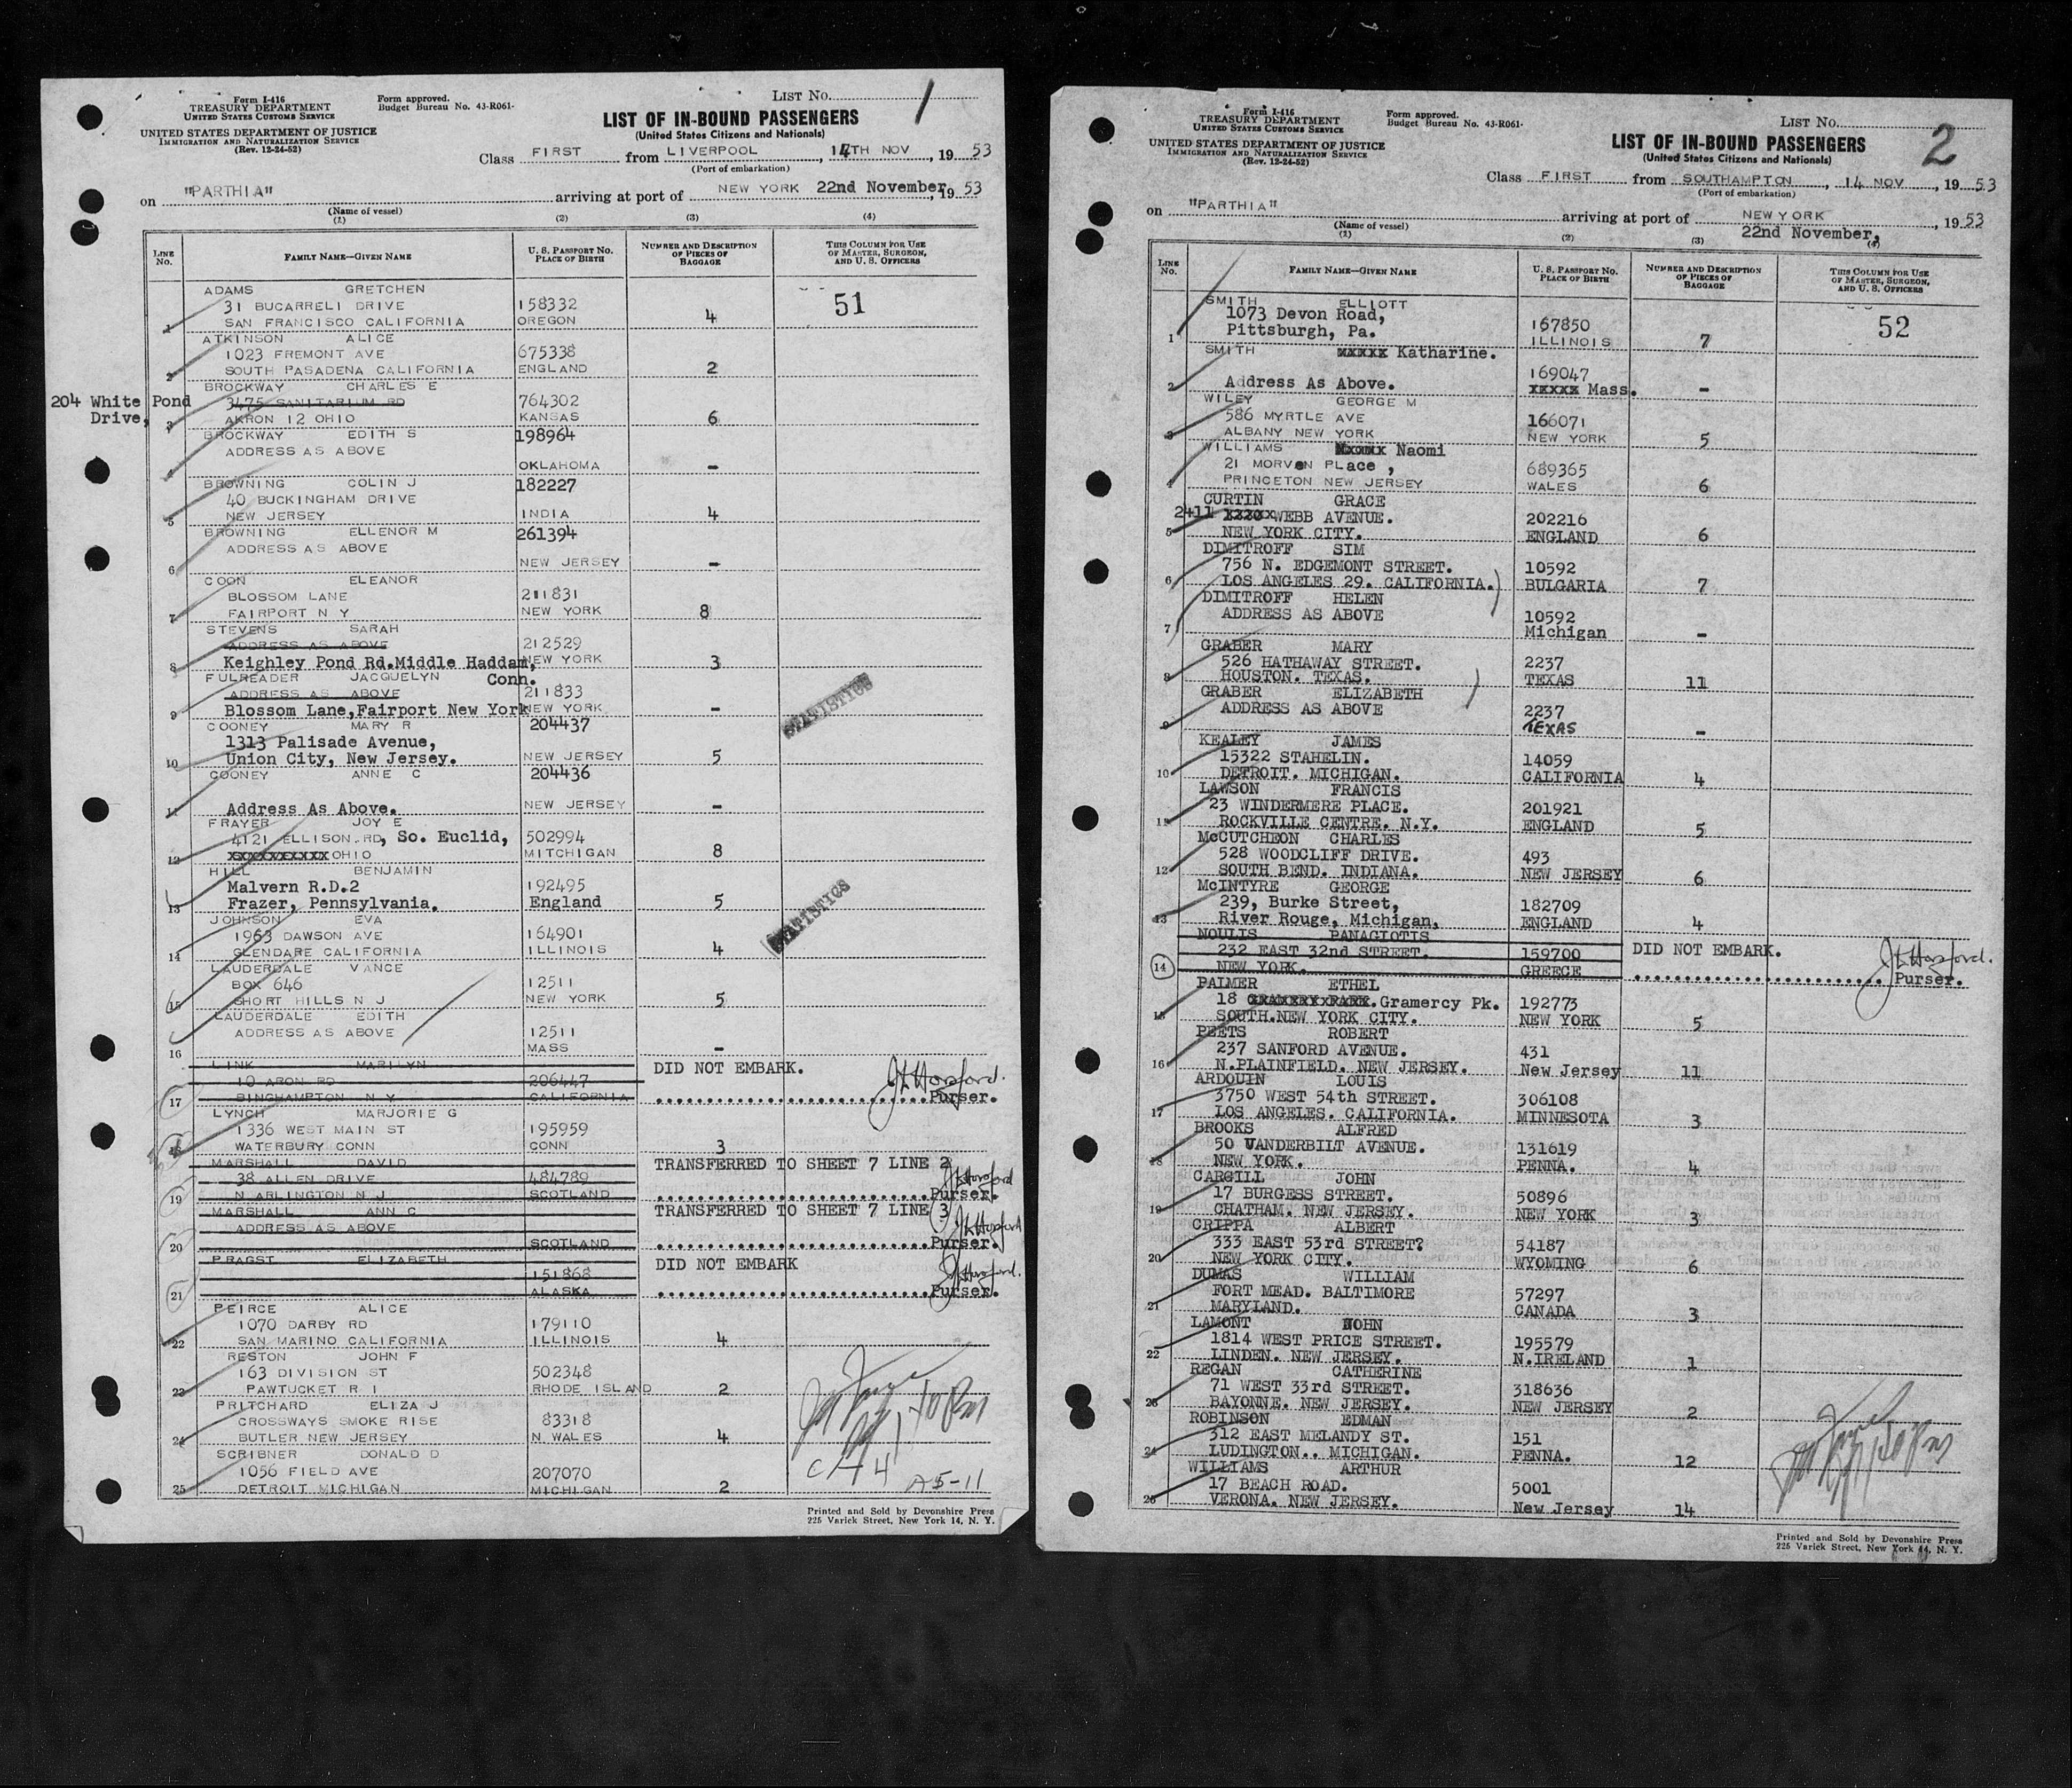 Form I-416
TREASURY DEPARTMENT
UNITED STATES CUSTOMS SERVICE
UNITED STATES DEPARTMENT OF JUSTICE
IMMIGRATION AND NATURALIZATION SERVICE
(Rev. 12-24-52)
Form approved.
Budget Bureau No. 43-R061-
LIST No. 1
LIST OF IN-BOUND PASSENGERS
(United States Citizens and Nationals)
Class FIRST from LIVERPOOL, 14TH NOV, 1953
(Port of embarkation)
on "PARTHIA" arriving at port of NEW YORK 22nd November, 1953
(Name of vessel)
(1) (2) (3) (4)
LINE No. FAMILY NAME—GIVEN NAME U. S. PASSPORT NO. PLACE OF BIRTH NUMBER AND DESCRIPTION OF PIECES OF BAGGAGE THIS COLUMN FOR USE OF MASTER, SURGEON, AND U. S. OFFICERS
ADAMS GRETCHEN
31 BUCARRELI DRIVE 158332 51
1 SAN FRANCISCO CALIFORNIA OREGON 4
ATKINSON ALICE
1023 FREMONT AVE 675338
2 SOUTH PASADENA CALIFORNIA ENGLAND 2
BROCKWAY CHARLES E
204 White Pond Drive, 3475 SANITARIUM RD 764302
3 AKRON 12 OHIO KANSAS 6
BROCKWAY EDITH S 198964
ADDRESS AS ABOVE
4 OKLAHOMA -
BROWNING COLIN J 182227
40 BUCKINGHAM DRIVE
5 NEW JERSEY INDIA 4
BROWNING ELLENOR M 261394
ADDRESS AS ABOVE
6 NEW JERSEY -
COON ELEANOR
BLOSSOM LANE 211831
7 FAIRPORT N Y NEW YORK 8
STEVENS SARAH
ADDRESS AS ABOVE 212529
8 Keighley Pond Rd.Middle Haddam, Conn. NEW YORK 3
FULREADER JACQUELYN
ADDRESS AS ABOVE 211833
9 Blossom Lane,Fairport New York NEW YORK - STATISTICS
COONEY MARY R 204437
1313 Palisade Avenue,
10 Union City, New Jersey. NEW JERSEY 5
COONEY ANNE C 204436
11 Address As Above. NEW JERSEY -
FRAYER JOY E
4121 ELLISON RD, So. Euclid, 502994
12 xxxxxxxxxx OHIO MITCHIGAN 8
HILL BENJAMIN
Malvern R.D.2 192495
13 Frazer, Pennsylvania. England 5 STATISTICS
JOHNSON EVA
1963 DAWSON AVE 164901
14 GLENDARE CALIFORNIA ILLINOIS 4
LAUDERDALE VANCE
BOX 646 12511
15 SHORT HILLS N J NEW YORK 5
LAUDERDALE EDITH
ADDRESS AS ABOVE 12511
16 MASS -
LINK MARILYN DID NOT EMBARK.
10 ARON RD 206447
17 BINGHAMPTON N Y CALIFORNIA Purser.
LYNCH MARJORIE G
1336 WEST MAIN ST 195959
18 WATERBURY CONN CONN 3
MARSHALL DAVID TRANSFERRED TO SHEET 7 LINE 2
38 ALLEN DRIVE 484789
19 N ARLINGTON N J SCOTLAND Purser.
MARSHALL ANN C TRANSFERRED TO SHEET 7 LINE 3
ADDRESS AS ABOVE
20 SCOTLAND Purser.
PRAGST ELIZABETH DID NOT EMBARK
151868
21 ALASKA Purser.
PEIRCE ALICE
1070 DARBY RD 179110
22 SAN MARINO CALIFORNIA ILLINOIS 4
RESTON JOHN F
163 DIVISION ST 502348
23 PAWTUCKET R I RHODE ISLAND 2
PRITCHARD ELIZA J
CROSSWAYS SMOKE RISE 83318
24 BUTLER NEW JERSEY N WALES 4
SCRIBNER DONALD D
1056 FIELD AVE 207070
25 DETROIT MICHIGAN MICHIGAN 2
25-11
Printed and Sold by Devonshire Press
225 Varick Street, New York 14, N. Y.
Form I-416
TREASURY DEPARTMENT
UNITED STATES CUSTOMS SERVICE
UNITED STATES DEPARTMENT OF JUSTICE
IMMIGRATION AND NATURALIZATION SERVICE
(Rev. 12-24-52)
Form approved.
Budget Bureau No. 43-R061-
LIST No. 2
LIST OF IN-BOUND PASSENGERS
(United States Citizens and Nationals)
Class FIRST from SOUTHAMPTON, 14 NOV, 1953
(Port of embarkation)
on "PARTHIA" arriving at port of NEW YORK 22nd November, 1953
(Name of vessel)
(1) (2) (3) (4)
LINE No. FAMILY NAME—GIVEN NAME U. S. PASSPORT NO. PLACE OF BIRTH NUMBER AND DESCRIPTION OF PIECES OF BAGGAGE THIS COLUMN FOR USE OF MASTER, SURGEON, AND U. S. OFFICERS
SMITH ELLIOTT
1073 Devon Road, 167850 52
1 Pittsburgh, Pa. ILLINOIS 7
SMITH xxxxx Katharine.
169047
2 Address As Above. xxxxx Mass. -
WILEY GEORGE M
586 MYRTLE AVE 166071
3 ALBANY NEW YORK NEW YORK 5
WILLIAMS xxxxx Naomi
21 MORVEN PLACE, 689365
4 PRINCETON NEW JERSEY WALES 6
CURTIN GRACE
2411 WEBB AVENUE. 202216
5 NEW YORK CITY. ENGLAND 6
DIMITROFF SIM
756 N. EDGEMONT STREET. 10592
6 LOS ANGELES 29. CALIFORNIA. BULGARIA 7
DIMITROFF HELEN
ADDRESS AS ABOVE 10592
7 Michigan -
GRABER MARY
526 HATHAWAY STREET. 2237
8 HOUSTON. TEXAS. TEXAS 11
GRABER ELIZABETH
ADDRESS AS ABOVE 2237
9 TEXAS -
KEALEY JAMES
15322 STAHELIN. 14059
10 DETROIT. MICHIGAN. CALIFORNIA 4
LAWSON FRANCIS
23 WINDERMERE PLACE. 201921
11 ROCKVILLE CENTRE. N.Y. ENGLAND 5
McCUTCHEON CHARLES
528 WOODCLIFF DRIVE. 493
12 SOUTH BEND. INDIANA. NEW JERSEY 6
McINTYRE GEORGE
239, Burke Street, 182709
13 River Rouge, Michigan, ENGLAND 4
NOULIS PANAGIOTIS
232 EAST 32nd STREET. 159700 DID NOT EMBARK.
14 NEW YORK. GREECE Purser.
PALMER ETHEL
18 GRAMERY PARK. Gramercy Pk. 192773
15 SOUTH.NEW YORK CITY. NEW YORK 5
PEETS ROBERT
237 SANFORD AVENUE. 431
16 N.PLAINFIELD. NEW JERSEY. New Jersey 11
ARDOUIN LOUIS
3750 WEST 54th STREET. 306108
17 LOS ANGELES. CALIFORNIA. MINNESOTA 3
BROOKS ALFRED
50 VANDERBILT AVENUE. 131619
18 NEW YORK. PENNA. 4
CARGILL JOHN
17 BURGESS STREET. 50896
19 CHATHAM. NEW JERSEY. NEW YORK 3
CRIPPA ALBERT
333 EAST 53rd STREET? 54187
20 NEW YORK CITY. WYOMING 6
DUMAS WILLIAM
FORT MEAD. BALTIMORE 57297
21 MARYLAND. CANADA 3
LAMONT JOHN
1814 WEST PRICE STREET. 195579
22 LINDEN. NEW JERSEY. N.IRELAND 1
REGAN CATHERINE
71 WEST 33rd STREET. 318636
23 BAYONNE. NEW JERSEY. NEW JERSEY 2
ROBINSON EDMAN
312 EAST MELANDY ST. 151
24 LUDINGTON.. MICHIGAN. PENNA. 12
WILLIAMS ARTHUR
17 BEACH ROAD. 5001
25 VERONA. NEW JERSEY. New Jersey 14
Printed and Sold by Devonshire Press
225 Varick Street, New York 14, N. Y.